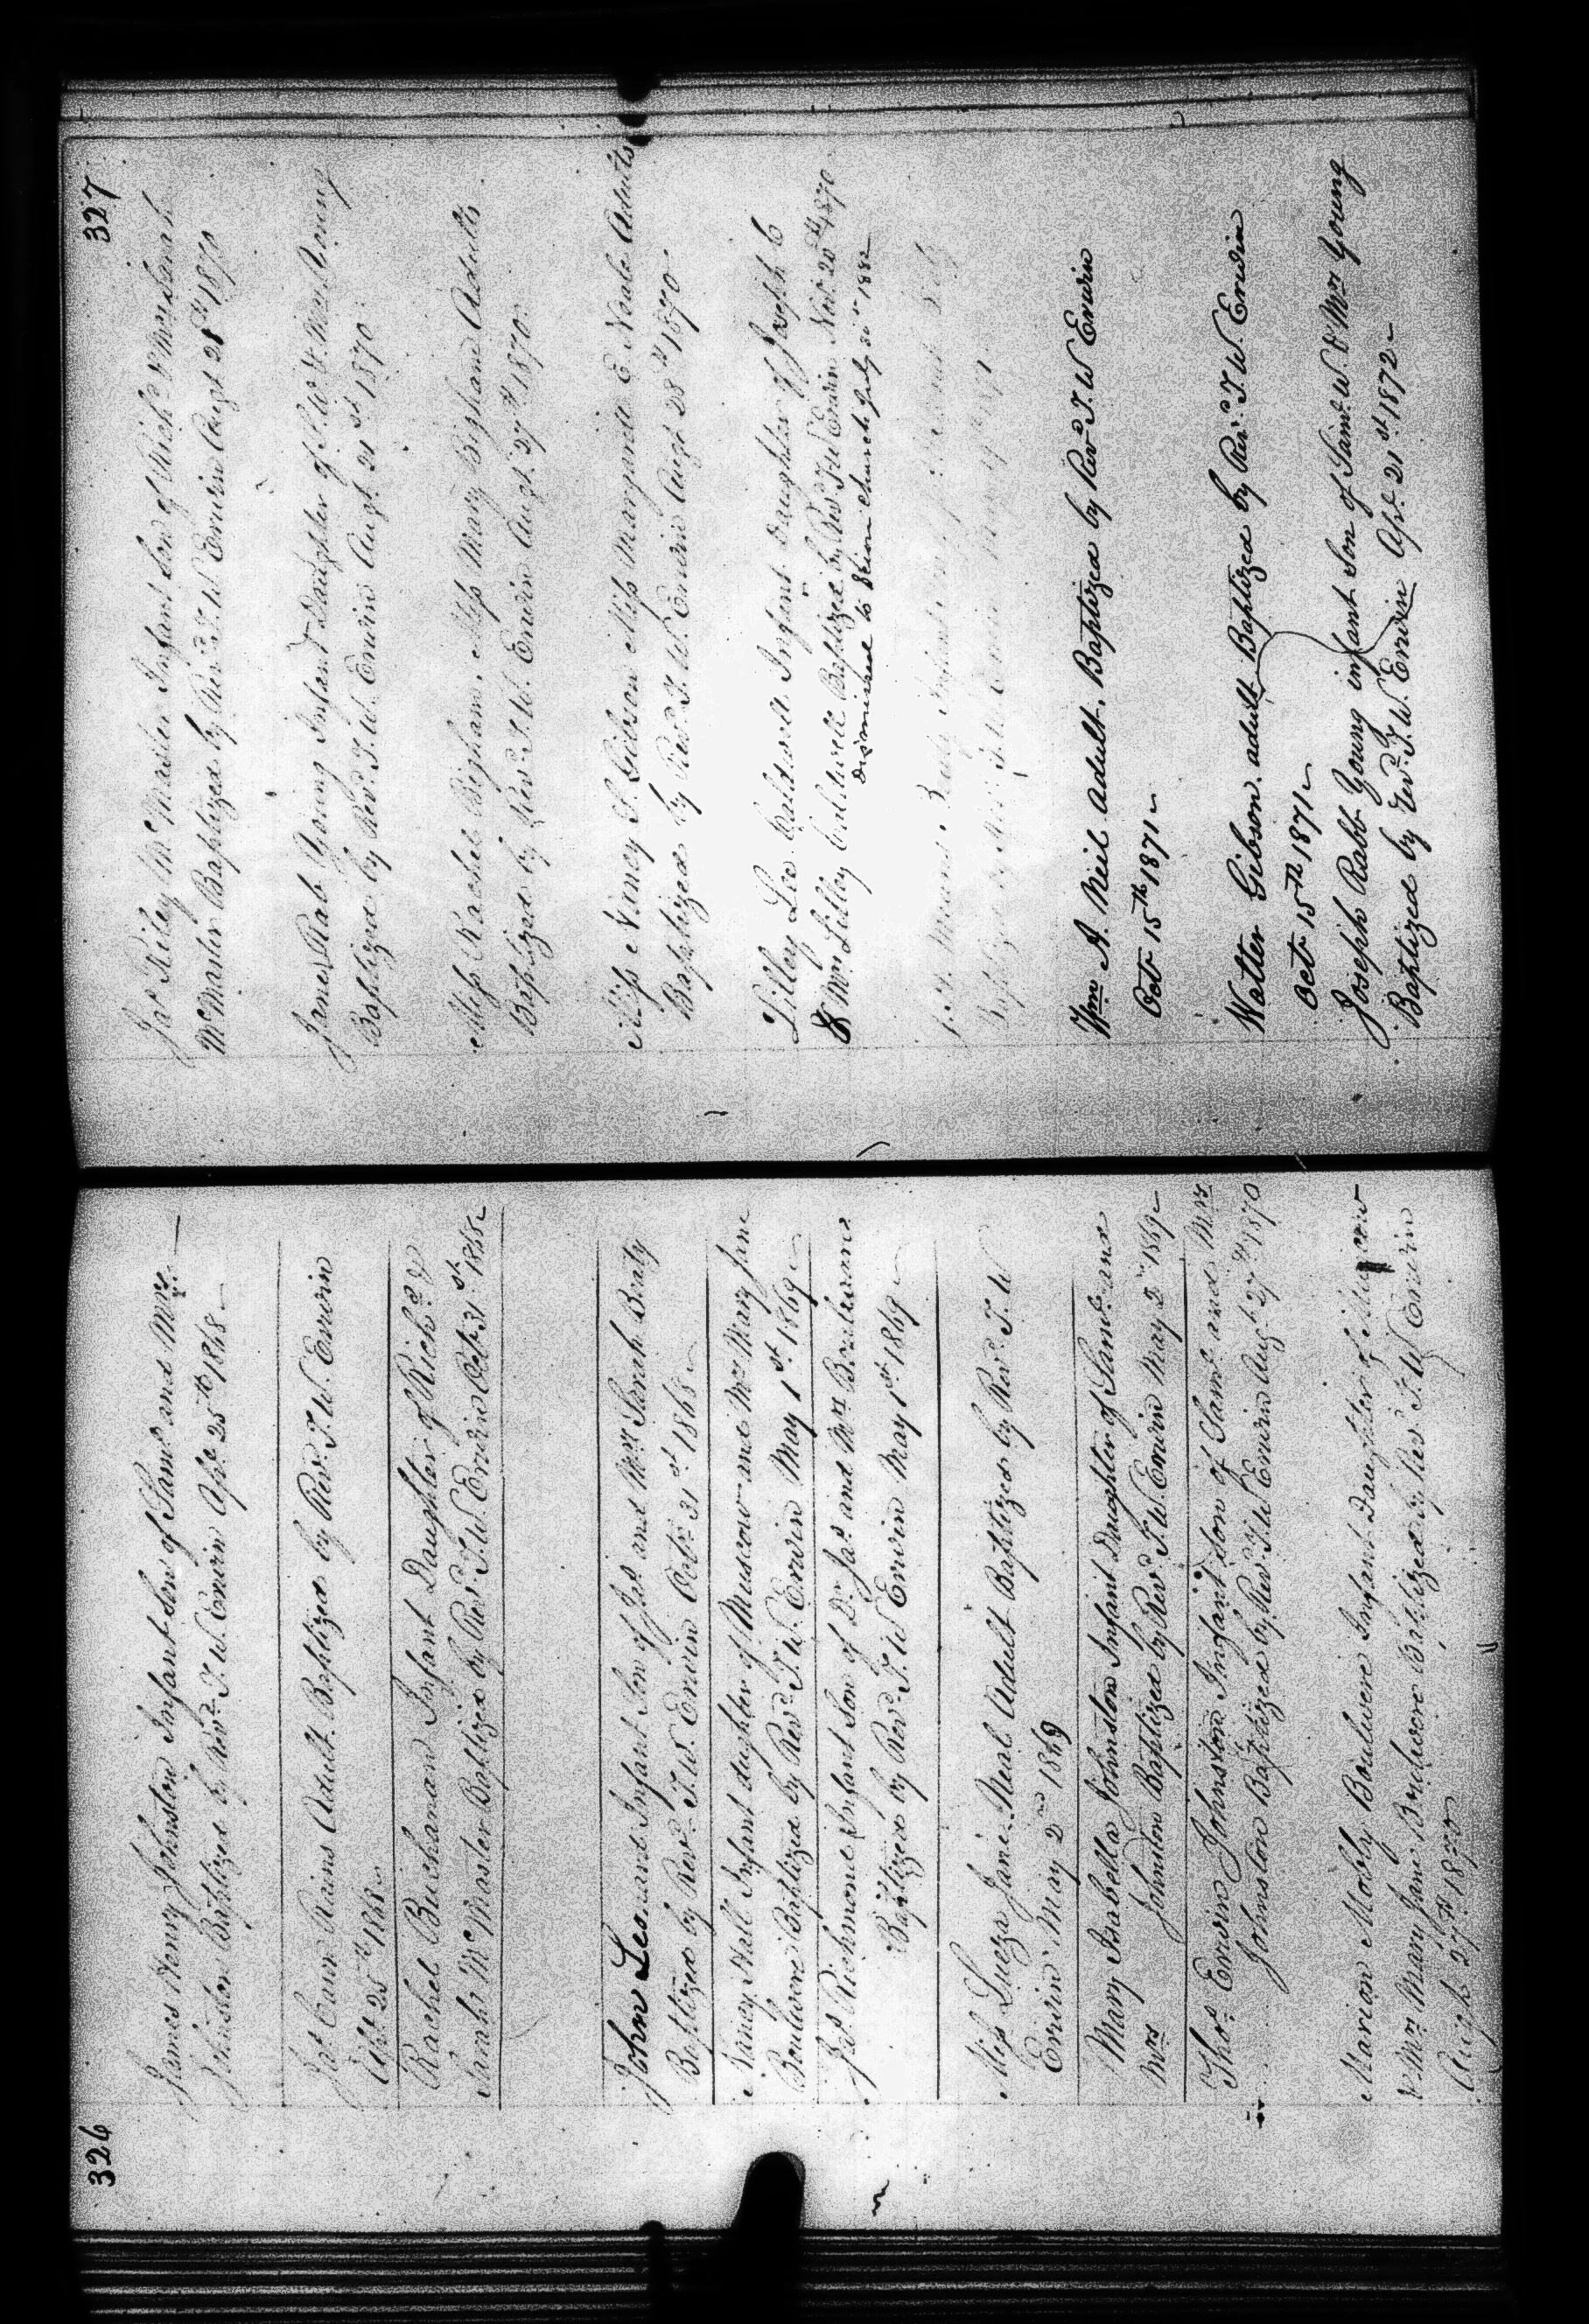 326
James Henry Johnston Infant Son of Saml and Mrs
Johnston Baptized by Revd T. W. Erwin Apl 25th 1868
Jas Cawn Rains Adult. Baptized by Revd T. W. Erwin
Apl 25th 1868
Rachel Buchanan Infant Daughter of Richd &
Sarah McMaster Baptized by Revd T. W. Erwin Oct 31st 1868
John Leard Infant Son of Jas and Mrs Sarah Beaty
Baptized by Revd T. W. Erwin Octr 31st 1868
Nancy Hall Infant dughter of Muscow and Mrs Mary Jane
Boulwere Baptized by Revd T. W. Erwin May 1st 1869
Jas Richmond Infant Son of Dr Jas and Mrs Boulware
Baptized by Revd T. W Erwin May 1st 1869
Miss Lueza Jane Neal Adult Baptized by Revd T. W
Erwin May 2nd 1869
Mary Isabella Johnston Infant Daughter of Saml and
Mrs Johnston Baptized by Revd T. W. Erwin May 2nd 1869
Thos Erwin Johnston Infant Son of Saml and Mrs
Johnston Baptized by Revd T. W Erwin Augt 27th 1870
Marion Mobly Boulwere Infant Daughter of Muscow
& Mrs Mary Jane Boulwore Baptized by Revd T. W Erwin
Augt 27th 1870
327
Jas Riley McMaster Infant Son of Richd & Mrs Sarah
McMaster Baptized by Revd T. W. Erwin Augt 28th 1870
Jane Rab Young Infant Daughter of S. W. & Mrs Young
Baptized by Revd T. W. Erwin Augt 21st 1870
Miss Rachel Bigham. Miss Mary Bigham Adults
Baptized by Revd T. W. Erwin Augt 27th 1870
Miss Nancy S. Gibson Miss Margaret E. Neale Adults
Baptized by Revd T. W. Erwin Augt 28th 1870
Lilley Lee Caldwell Infant Daughter of Joseph C
& Mrs Lilley Caldwell Baptized by Revd T W Erwin Novr 20th 1870
Dismissed to Brion Church July 31st 1882
Beaty Infant
Baptized by Revd T. W. Erwin 1871
Wm A. Neil Adult. Baptized by Revd T. W Erwin
Oct 15th 1871
Walter Gibson. adult Baptized by Revd T. W. Erwin
Oct 15th 1871
Joseph Rabb Young infant Son of Saml W. & Mrs Young
Baptized by Revd T. W. Erwin Apl 21st 1872